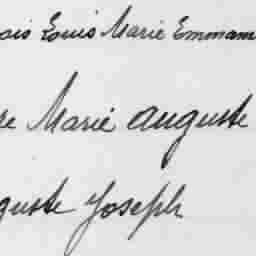 ois Louis Marie Emman
re Marie Auguste
guste Joseph